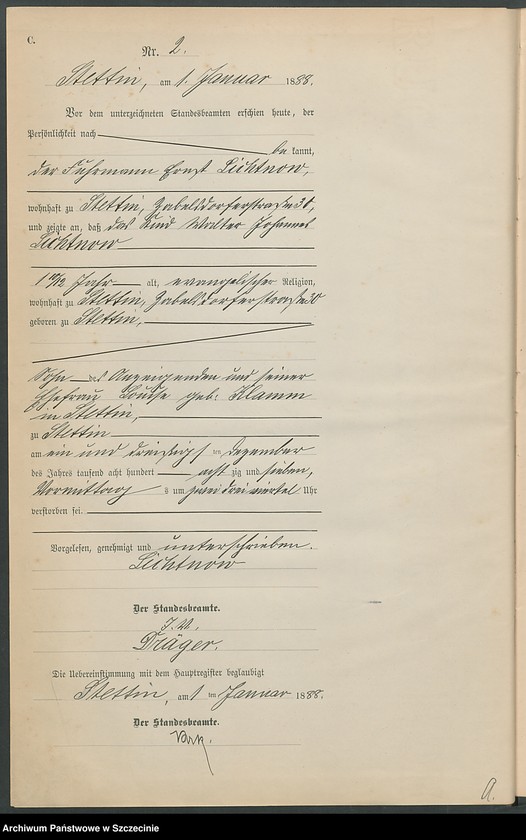 C.
Nr. 2.
Stettin, am 1. Januar 1888.
Vor dem unterzeichneten Standesbeamten erschien heute, der
Persönlichkeit nach
be kannt,
der Fuhrmann Ernst Lichtnow,
wohnhaft zu Stettin, Zabelsdorferstraße 30,
und zeigte an, daß das Kind Walter Johannes
Lichtnow
1 10/12 Jahr alt, evangelischer Religion,
wohnhaft zu Stettin, Zabelsdorferstraße 30
geboren zu Stettin,
Sohn des Anzeigenden und seiner
Ehefrau Louise geb: Klamm
in Stettin,
zu Stettin
am ein und dreißigsten Dezember
des Jahres tausend acht hundert acht zig und sieben,
Vormittags um zwei drei viertel Uhr
verstorben sei.
Vorgelesen, genehmigt und unterschrieben.
Lichtnow
Der Standesbeamte.
I. V.
Dräger.
Die Uebereinstimmung mit dem Hauptregister beglaubigt
Stettin, am 1 ten Januar 1888.
Der Standesbeamte.
a.
Archiwum Państwowe w Szczecinie